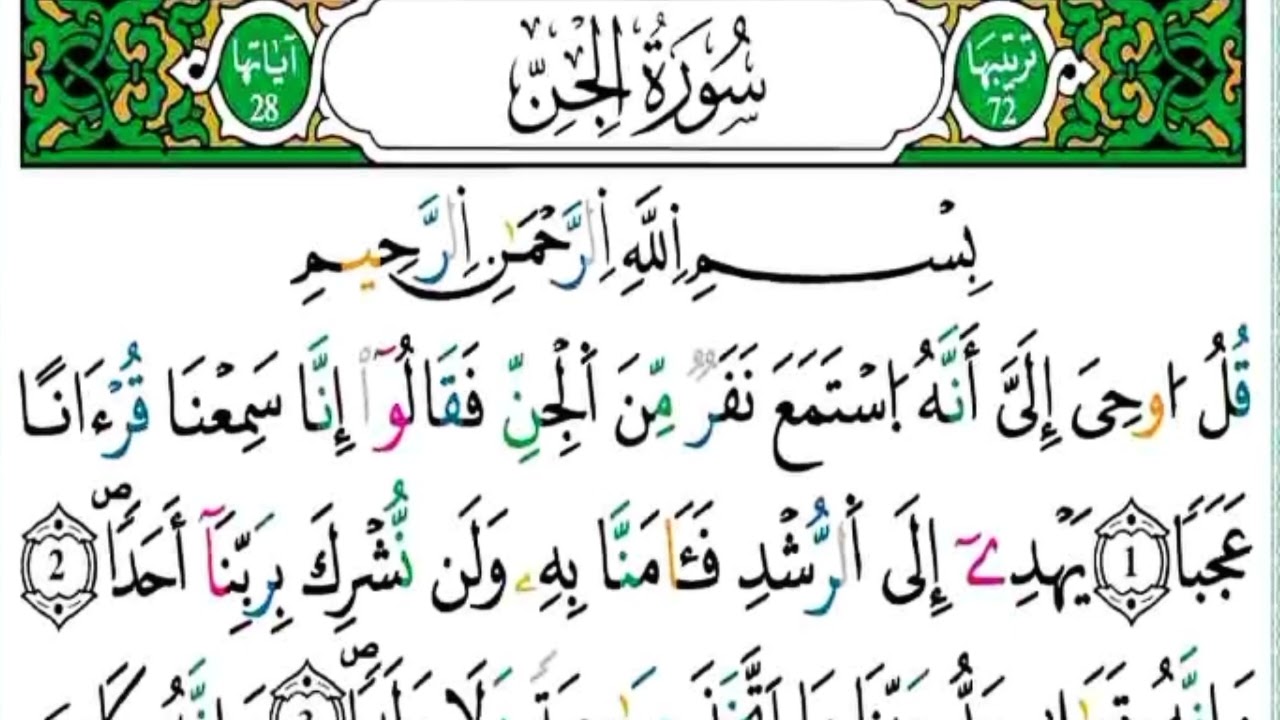 تَرْتِيبُهَا 72
سُورَةُ الْجِنِّ
آيَاتُهَا 28
بِسْمِ اِللَّهِ اِلرَّحْمَٰنِ اِلرَّحِيمِ
قُلُ اُوحِىَ إِلَىَّ أَنَّهُ اُ۪سْتَمَعَ نَفَرٌ مِّنَ اَ۬لْجِنِّ فَقَالُوٓاْ إِنَّا سَمِعْنَا قُرْءَانًا
عَجَبًا 1 يَهْدِےٓ إِلَى اَ۬لرُّشْدِ فَـَٔامَنَّا بِهِۦ وَلَن نُّشْرِكَ بِرَبِّنَآ أَحَدًاۖ 2